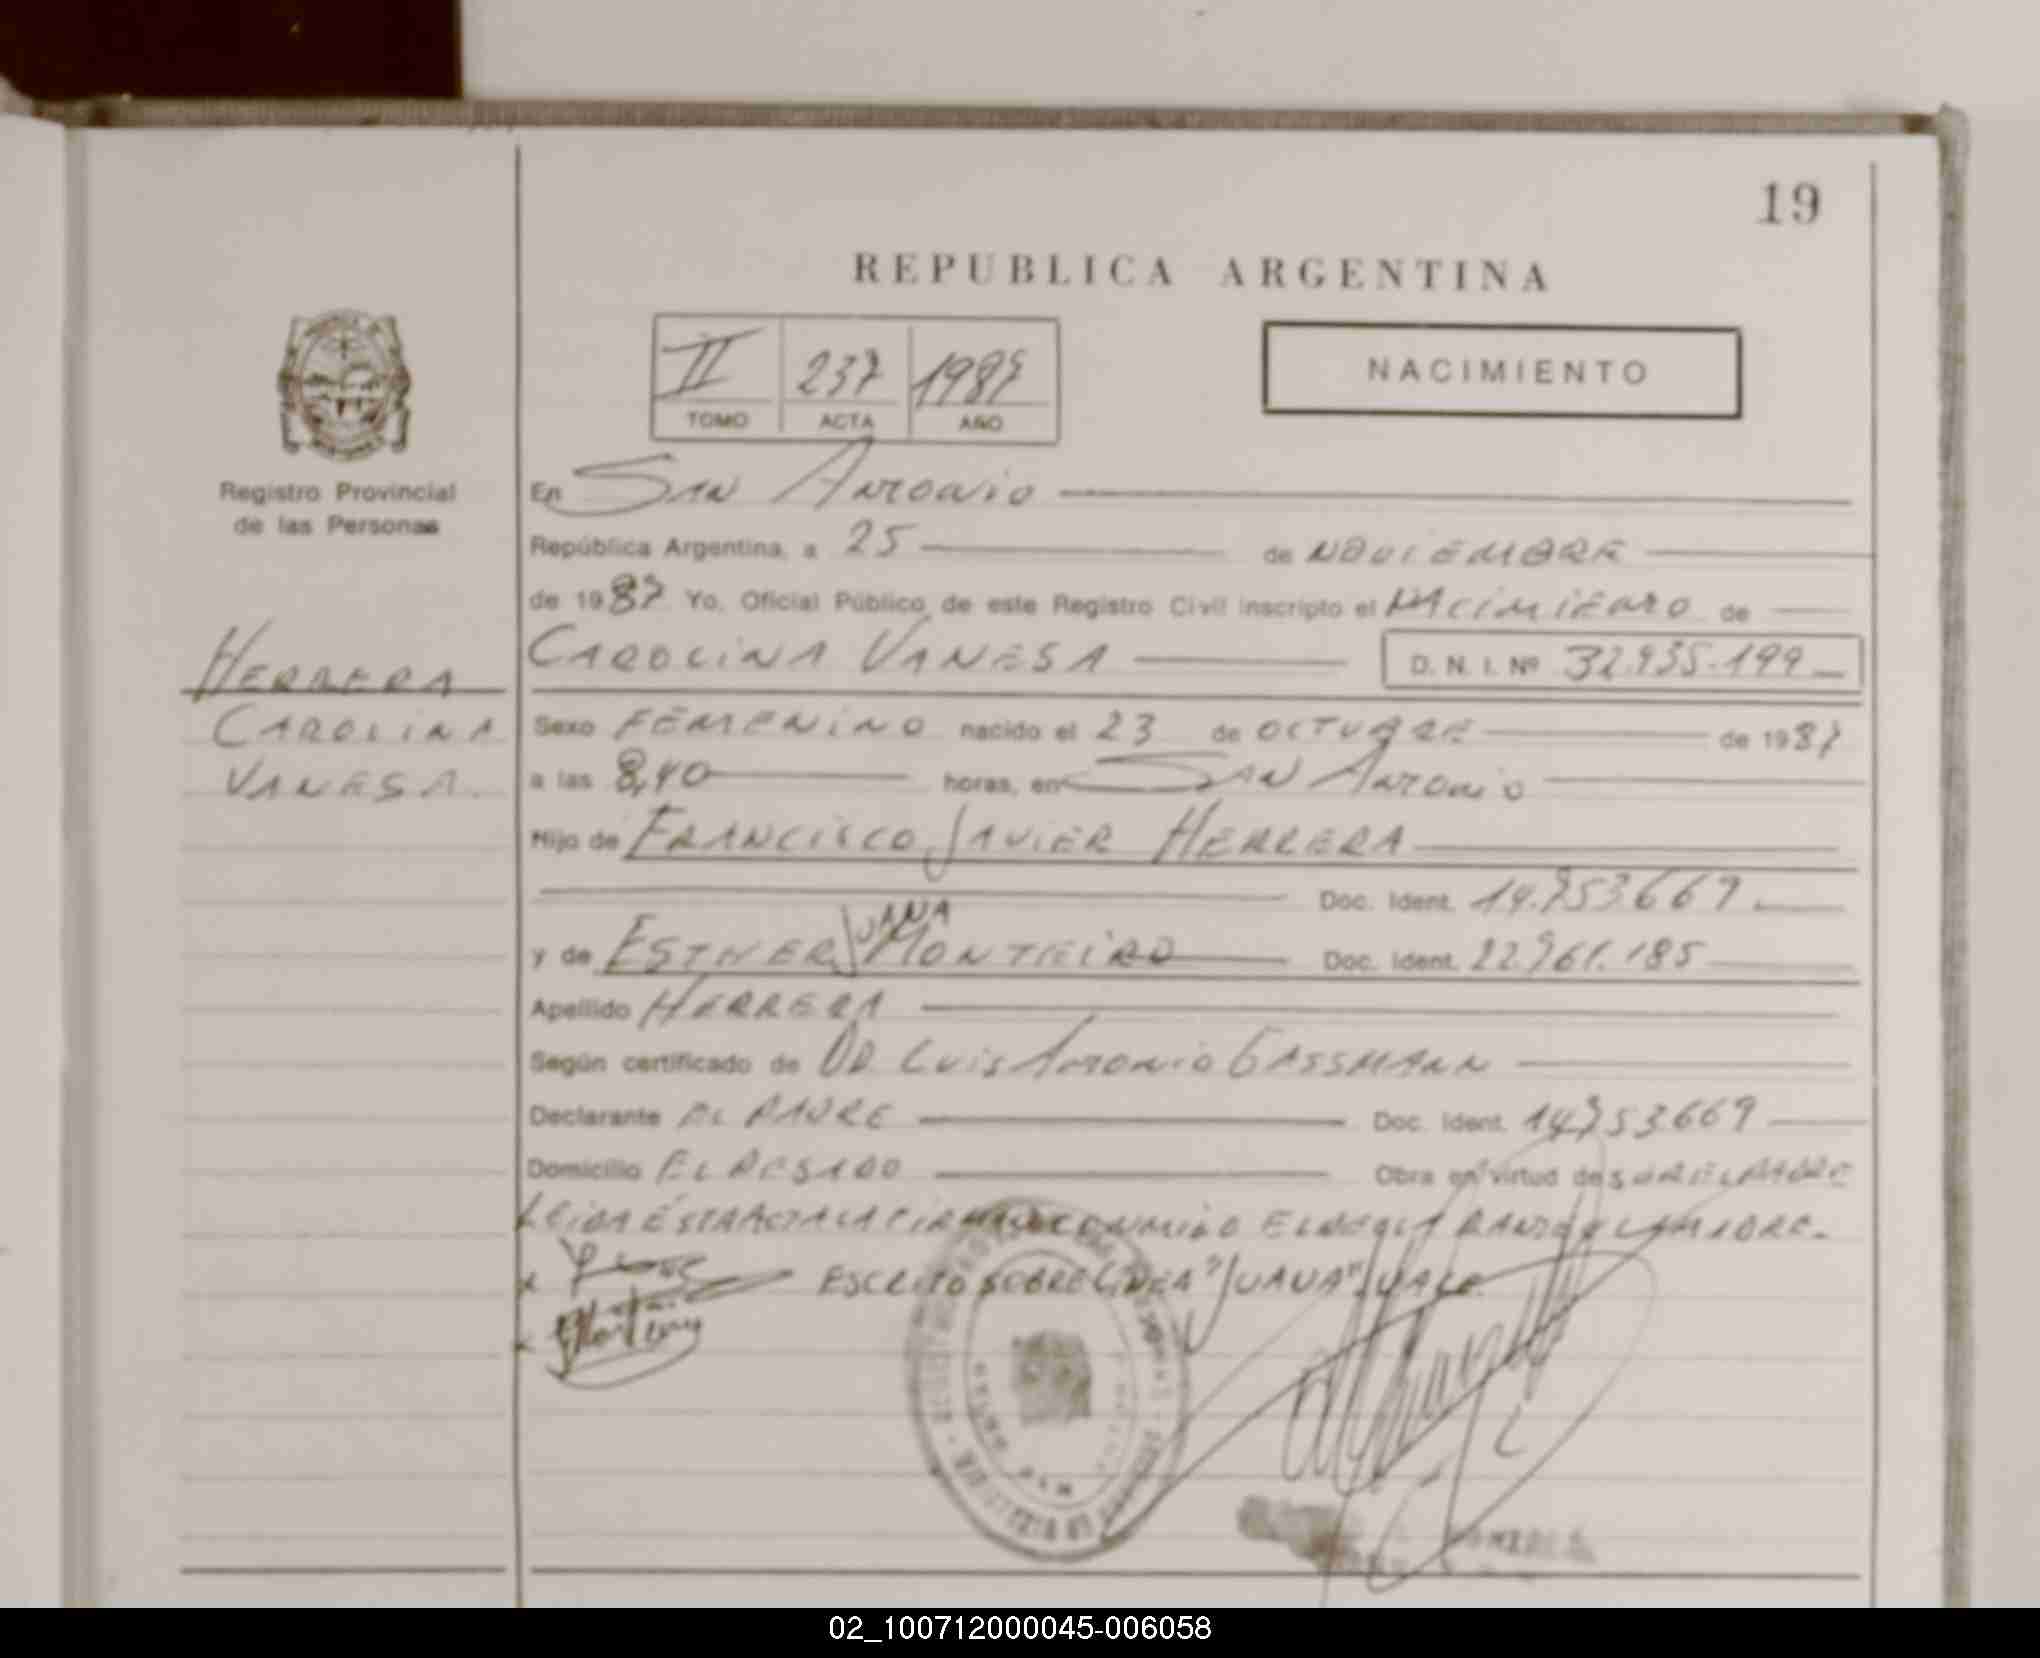 19
REPUBLICA ARGENTINA
II 237 1987
TOMO ACTA AÑO
NACIMIENTO
Registro Provincial
de las Personas
En SAN ANTONIO
República Argentina, a 25 de NOVIEMBRE
de 1987 Yo, Oficial Público de este Registro Civil inscripto el NACIMIENTO de
HERRERA
CAROLINA
VANESA.
CAROLINA VANESA D. N. I. Nº 32.935.199
Sexo FEMENINO nacido el 23 de OCTUBRE de 1987
a las 8,40 horas, en SAN ANTONIO
Hijo de FRANCISCO JAVIER HERRERA
Doc. Ident. 14.753.669
y de ESTHER JUANA MONTIEIRO Doc. Ident. 22.961.185
Apellido HERRERA
Según certificado de DR. LUIS ANTONIO GASSMANN
Declarante EL PADRE Doc. Ident. 14.753.669
Domicilio Obra en virtud de SER EL PADRE
LEIDA EL ACTA LA FIRMAN CONMIGO EL DECLARANTE Y LA MADRE.
ESCRITO SOBRE LINEA "JUANA". VALE.
02_100712000045-006058